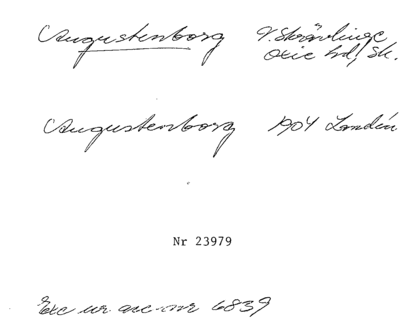 Augustenborg V. Skrävlinge
Oxie hd, Sk.
Augustenborg 1904 Landén
Nr 23979
Exc ur acc-nr 6839